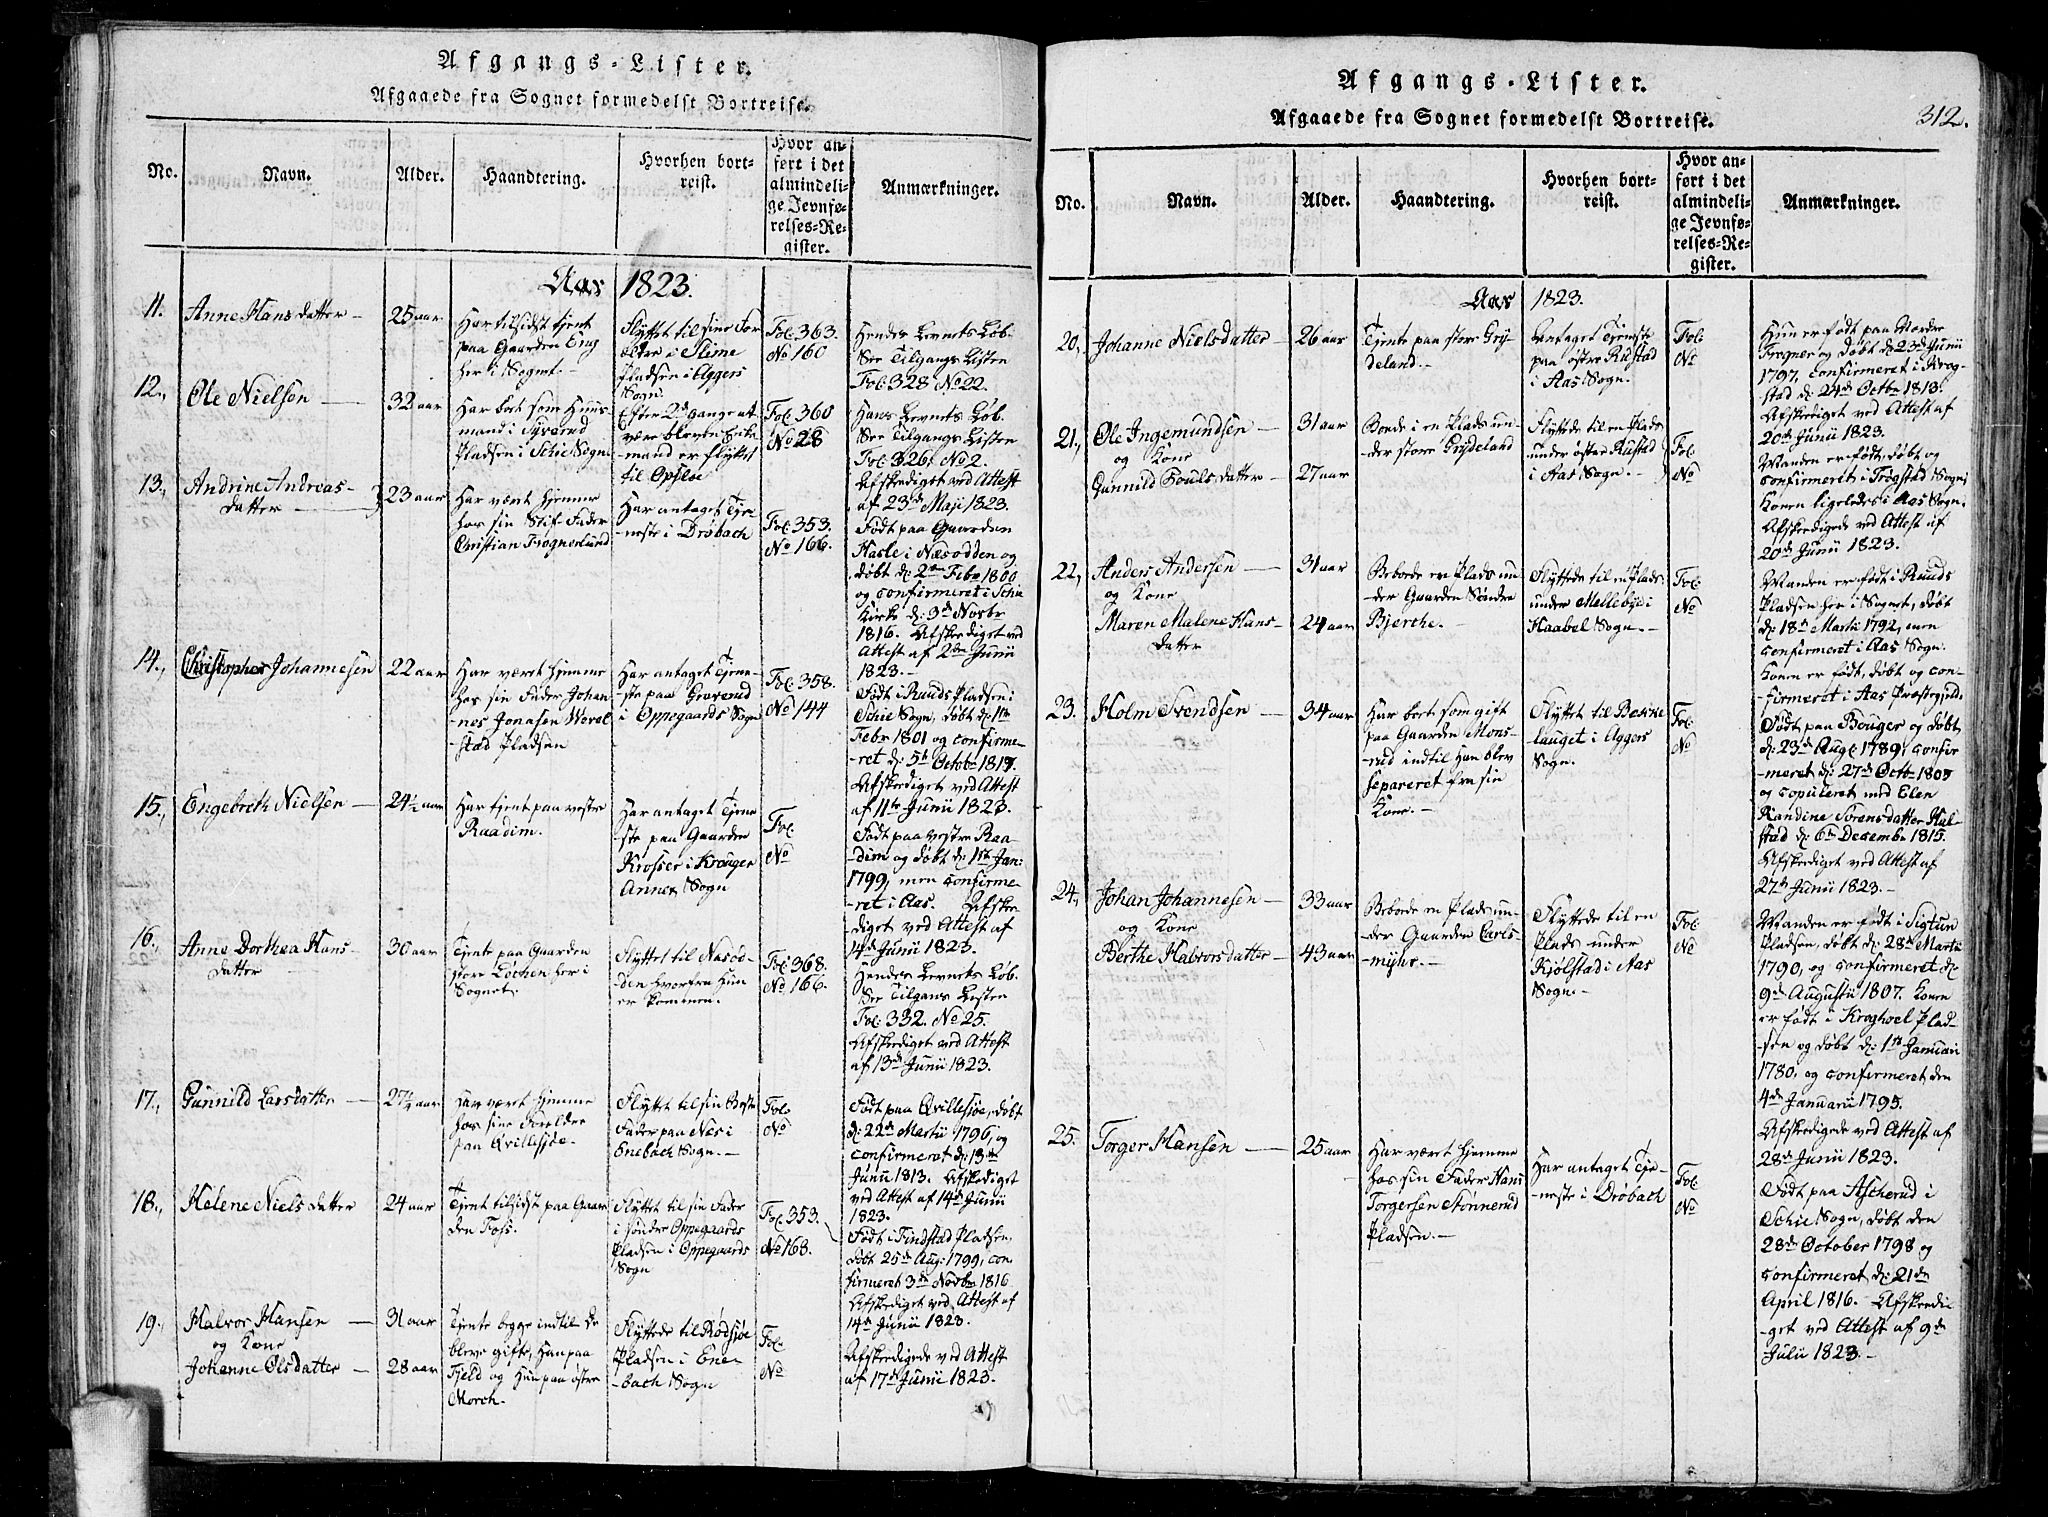 Afgangs-Lister.
Afgaaede fra Sognet formedelst Bortreise.
No.
Navn.
Alder.
Haandtering.
Hvorhen bort-
reist.
Hvor an-
ført i det
almindeli-
ge Jevnfø-
relses-Re-
gister.
Anmærkninger.
Aar 1823.
11.
Anne Hansdatter
25 aar
Har tilsidst tjent
paa Gaarden Eng
her i Sognet.
Flyttet til sine For
ælter i Slime
Pladsen i Aggers
Sogn.
Fol. 363.
No 160
Hendes Levnets Løb.
See Tilgangs Listen
Fol. 328 No 22.
12.,
Ole Nielsen
32 aar
Har boet som Huus
mand i Syverud
Pladsen i Schie Sogn.
Efter 2de gange at
være bleven Enke
mand er flyttet
til Opsloe
Fol. 360
No 28
Hans Levnets Løb.
See Tilgangs Listen
Fol. 326. No 2.
Afskediget ved Attest
af 23de Maji 1823.
13.,
Andrine Andreas-
datter
23 aar
Har været hjemme
hos sin Stif Fader
Christian Frognerlund
Har antaget Tje-
neste i Drøbach
Fol. 353.
No 166.
Født paa Gaarden
Hasle i Næsodden og
døbt d: 2den Febr 1800
og confirmeret i Schie
Kirke d: 3de Novbr
1816. Afskediget ved
Attest af 2den Junii
1823.
14.,
Christopher Johannesen
22 aar
Har været hjemme
hos sin Fader Johan
nes Jonasen Vevel-
stad Pladsen
Har antaget Tjene-
ste paa Greverud
i Oppegaards Sogn
Fol. 358.
No 144
Født i Ruuds Pladsen i
Schie Sogn, døbt d: 1ste
Febr 1801 og confirme-
ret d: 5te Octobr 1817.
Afskediget ved Attest
af 11te Junii 1823.
15.,
Engebreth Nielsen
24½ aar
Har tjent paa vestre
Raadim.
Har antaget Tjene
ste paa Gaarden
Krosser i Kraager
Annex Sogn
Fol.
No
Født paa vestre Raa-
dim og døbt d: 1ste Jan:
1799, men confirme-
ret i Aas. Afske
diget ved Attest af
14de Junii 1823.
16.,
Anne Dorthea Hans-
datter
30 aar
Tjente paa Gaarden
store Løchen her i
Sognet.
Flyttet til Næsød-
den hvorfra Hun
er kommen.
Fol. 368.
No 166.
Hendes Levnets Løb.
See Tilgans Listen
Fol. 332. No 25.
Afskediget ved Attest
af 13de Junii 1823.
17.,
Gunnild Larsdatter
27½ aar
Har været hjemme
hos sine Forelder
paa Qvillesjøe.
Flyttet til sin Beste
Fader paa Næs i
Enebach Sogn.
Fol.
No
Født paa Qvillesjøe, døbt
d: 22de Martii 1796, og
confirmeret d: 13de
Junii 1813. Afskediget
ved Attest af 14de Junii
1823.
18.,
Helene Nielsdatter
24 aar
Tjent tilsidst paa Gaar
den Foss.
Flyttet til sin Fader
i sønder Oppegaards
Pladsen i Oppegaards
Sogn
Fol. 353.
No 168.
Født i Findstad Pladsen,
døbt 25de Aug: 1799, con
firmeret 3de Novbr 1816
Afskediget ved Attest af
14de Junii 1823.
19.,
Halvor Hansen
31 aar
og Kone
Johanne Olsdatter
28 aar
Tjente begge indtil De
bleve gifte, Han paa
Fjeld og Hun paa østre
Morch.
Flyttede til Rødsjøe
Pladsen i Ene-
bach Sogn
Fol.
No
Afskedigede ved Attest
af 17de Junii 1823.
Afgangs-Lister.
Afgaaede fra Sognet formedelst Bortreise.
312.
No.
Navn.
Alder.
Haandtering.
Hvorhen bort-
reist.
Hvor an-
ført i det
almindeli-
ge Jevnfø-
relses-Re-
gister.
Anmærkninger.
Aar 1823.
20.,
Johanne Nielsdatter
26 aar
Tjente paa store Gry-
deland.
Antaget Tjeneste
paa østre Rustad
i Aas Sogn.
Fol.
No
Hun er født paa Nordre
Frogner og døbt d: 23de Junii
1797, confirmeret i Krog-
stad d: 24de Octbr 1813.
Afskediget ved Attest af
20de Junii 1823.
21.,
Ole Ingemundsen
31 aar
og Kone
Gunnild Poulsdatter
27 aar
Boede i en Plads un-
der store Grydeland
Flyttede til en Plads
under østre Rustad
i Aas Sogn.
Fol.
No
Manden er født, døbt og
confirmeret i Trøgstad Sogn,
Konen ligeledes i Aas Sogn.
Afskedigede ved Attest af
20de Junii 1823.
22.,
Anders Andersen
31 aar
og Kone
Maren Malene Hans-
datter
24 aar
Beboede en Plads un-
der Gaarden Søndre
Bjerche.
Flyttede til en Plads
under Mellebye i
Haabel Sogn.
Fol.
No
Manden er født i Ruuds
Pladsen her i Sognet, døbt
d: 18de Martii 1792, men
confirmeret i Aas Sogn.
Konen er født, døbt og con-
firmeret i Aas Præstegjeld.
23.
Holm Svendsen
34 aar
Har boet som gift
paa Gaarden Mons-
rud indtil Han blev
separeret fra sin
Kone.
Flyttet til Bække
lauget i Aggers
Sogn.
Fol.
No
Født paa Bouger og døbt
d: 23de Aug: 1789, confir
meret d: 27de Octbr 1805
og copuleret med Elen
Randine Sørensdatter Hal-
stad d: 6te Decembr 1815.
Afskediget ved Attest af
27de Junii 1823.
24.,
Johan Johannesen
33 aar
og Kone
Berthe Halvorsdatter
43 aar
Beboede en Plads un-
der Gaarden Carls-
myhr.
Flyttede til en
Plads under
Kjølstad i Aas
Sogn.
Fol.
No
Manden er født i Sigtun
Pladsen, døbt d: 28de Martii
1790, og confirmeret d:
9de Augustii 1807. Konen
er født i Kroghoel Plad-
sen og døbt d: 1ste Januari
1780, og confirmeret den
4de Januarii 1795.
Afskedigede ved Attest af
28de Junii 1823.
25.
Torger Hansen
25 aar
Har været hjemme
hos sin Fader Hans
Torgersen Stønnerud
Pladsen.
Har antaget Tje-
neste i Drøbach
Fol.
No
Født paa Ascherud i
Schie Sogn, døbt den
28de October 1798 og
confirmeret d: 21de
April 1816. Afskedi-
get ved Attest af 9de
Julii 1823.